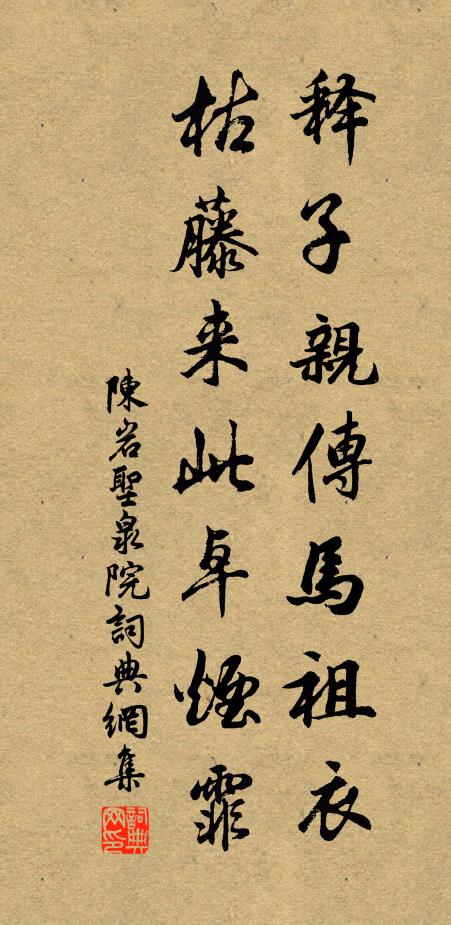 释子親傳馬祖衣
枯藤来此卓煙霏
陳岩聖泉院詞典網集
詞典网印